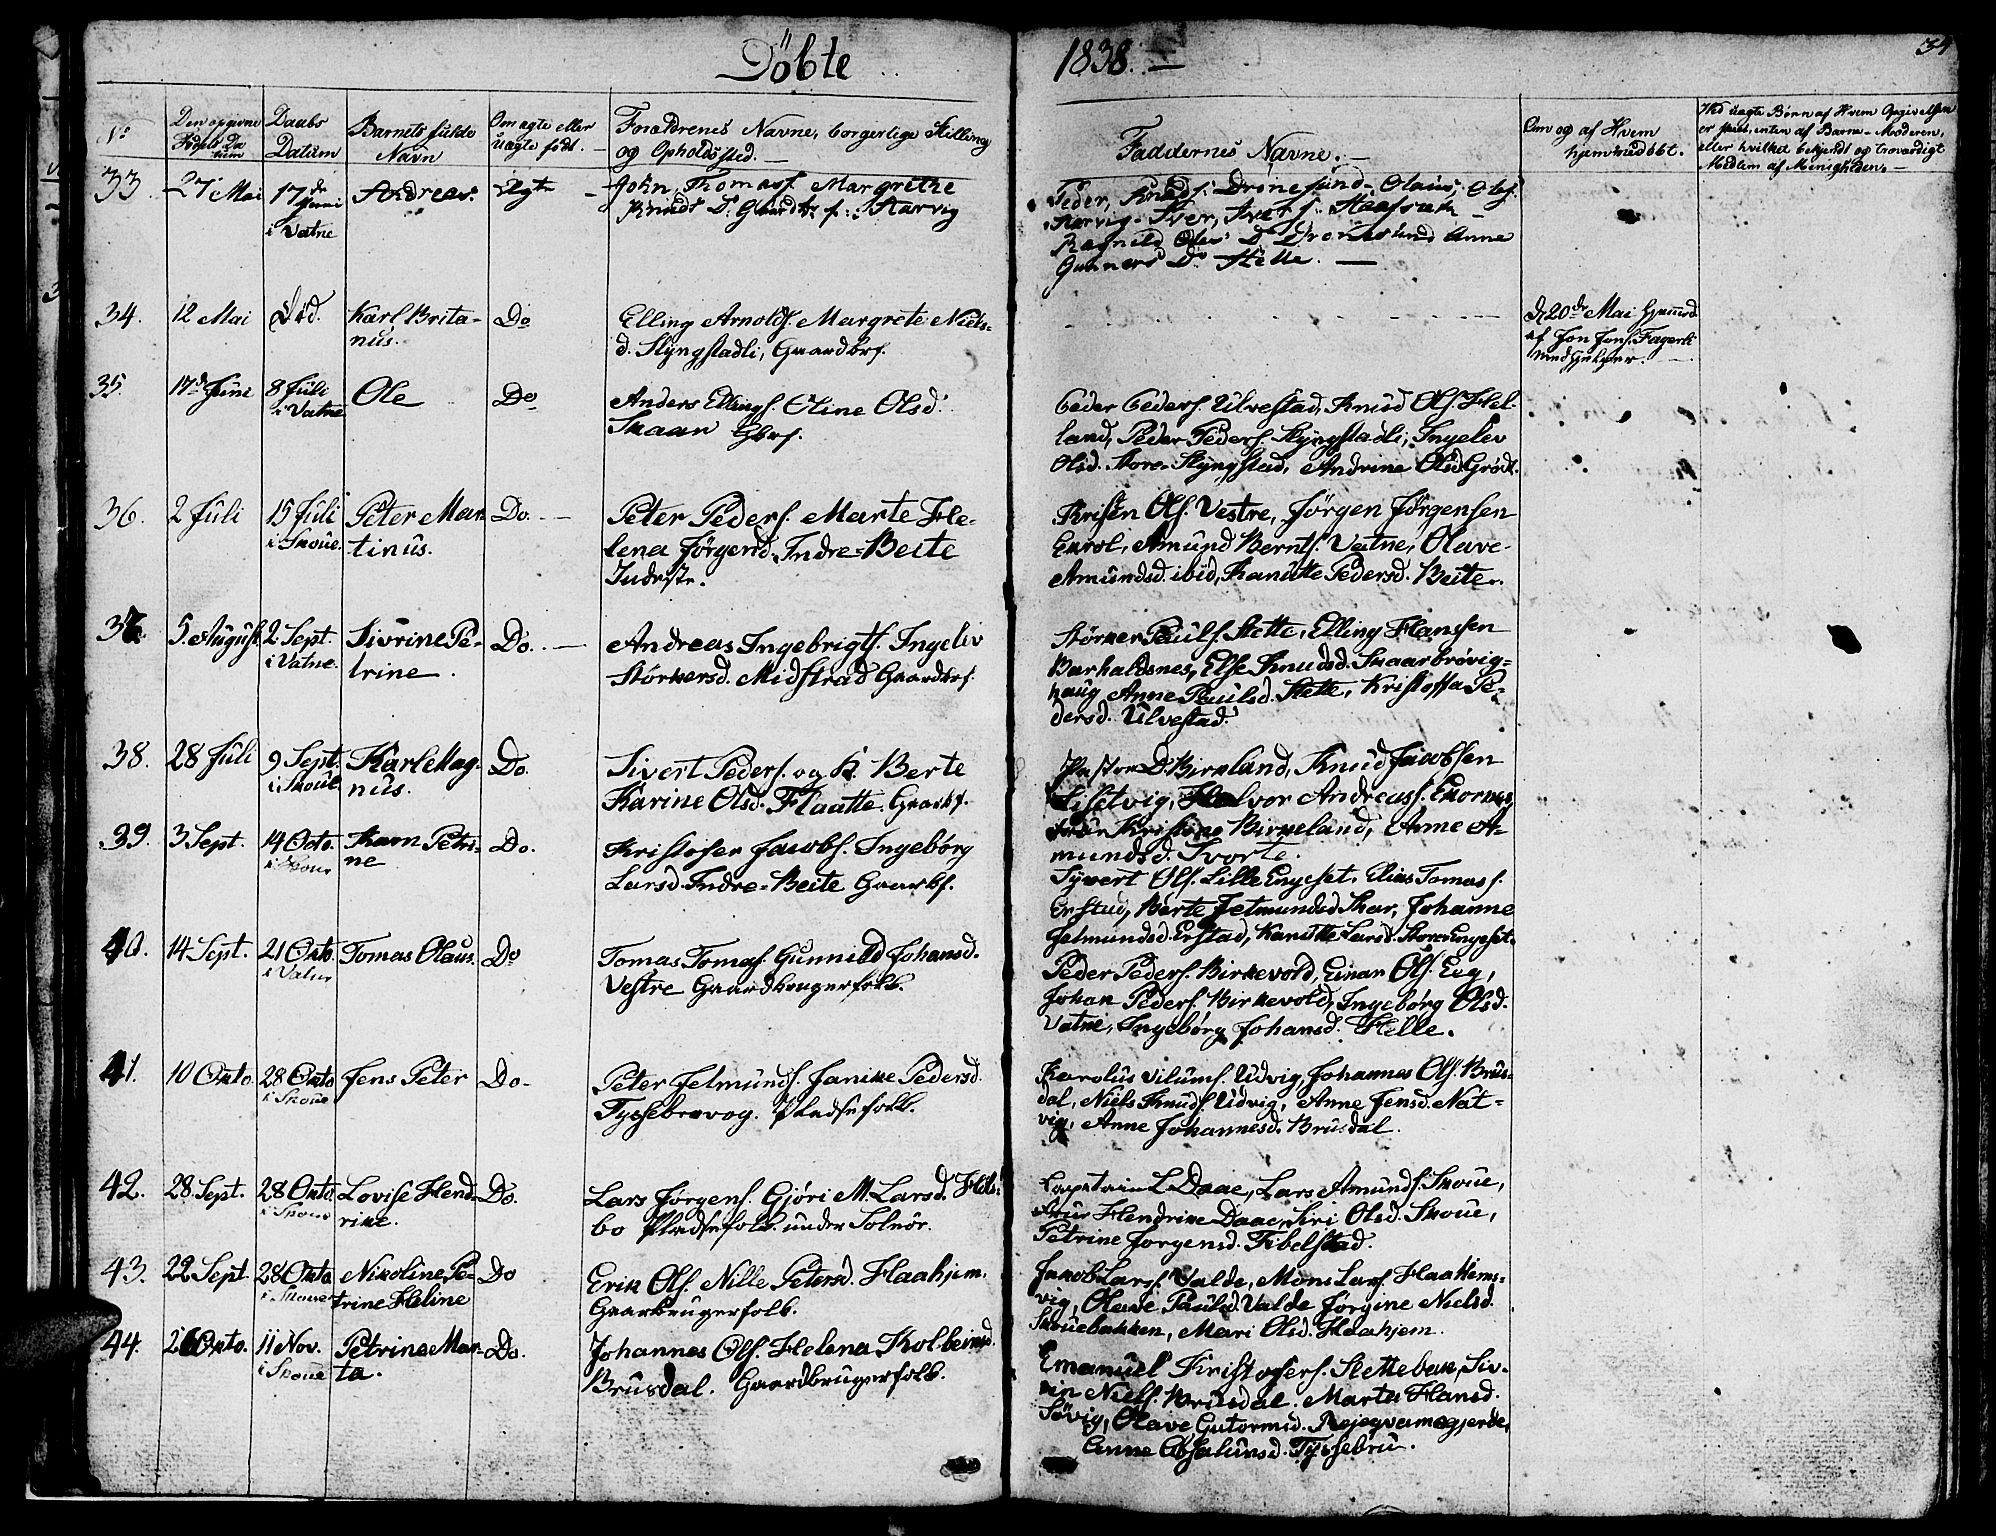 Döbte 1838. —
34
No
Den opgivne Födsels Datum
Daabs Datum
Barnets fulde Navn
Om ægte eller uægte födt. —
Forældrenes Navne, borgerlige Stilling og Opholdssted. —
Faddernes Navne. —
Om og af Hvem hjemmedöbt.
Ved uægte Börn af Hvem Opgivelsen er skeet, enten af Barne-Moderen, eller hvilket bekjendt og troværdigt Medlem af Menigheden. —
33. 27 Mai 17de Juni i Vatne Andreas. Ægte —
John Thomass. Margrethe
Knuds D. Gaardbr. f.:
Peder, Knuds: Dronesund - Olaus, Ols:
Iver, Ivers:
Ragnild Oles D
Anne
Gunners D. Helle. —
34. 12 Mai Död. Karl Brita-
nus. Do
Elling Arnolds. Margrete Niels-
d. Slyngstadli, Gaardbrf.
d. 20de Mai hjemd.
af Jon Jons. Fagerli
35. 17d Juni 8 Juli i Vatne Ole Do
Anders Ellings. Oline Olsd.
Skaar Gbrf.
Peder Peders. Ulvestad, Knud Ols. Hel-
land, Peder Peders. Slyngstadli, Ingelev
Olsd. Store-Slyngstad, Andrine Olsd. Gröt.
36. 2 Juli 15 Juli i Skoue. Peter Mar-
tinus. Do. —
Peter Peders. Marte He-
lena Jörgensd. Indre-Beite
Inderstr.
Ols. Vestre, Jörgen Jörgensen
Amund Bernts. Vatne, Olave
Amundsd. ibid, Kanutte Pedersd. Beite.
37. 5. August. 2. Sept. i Vatne. Sivrine Pe-
trine. Do. —
Andreas Ingebrigts. Ingeliv
Störkersd. Midstrad Gaardbrf.
Störker Pauls. Stette, Elling Hanssen
Barhaldsnes, Else Knudsd. Skaarbrövig-
haug Anne Paulsd. Stette, Kristoffa Pe-
dersd. Ulvestad.
38. 28 Juli 9 Sept. i Skoue Karl Mag-
nus. Do.
Sivert Peders. og K. Berte
Karine Olsd. Flaatte. Gaarbf.
Pastor D. Birkeland, Knud Jacobsen
Lisetvig, Halvor Andreass. Ekornes,
Frue Kristine Birkeland, Anne A-
mundsd. Svorte.
39. 3 Sept. 14 Octo. i Skoue Karn Petri-
ne Do.
Kristofer Jacobs. Ingeborg
Larsd. Indre-Beite Gaarbf.
Syvert Ols. Lille Engeset, Elias Tomass.
Erstad, Berte Jetmundsd. Skar, Johanne
Jetmundsd. Erstad, Kanutte Larsd. Store Engeset.
40. 14 Sept. 21 Okto. i Vatne Tomas Olaus. Do
Tomas Tomas. Gunnild Johansd.
Vestre Gaardbrugerfolk.
Peder Peders. Birkevold, Einar Ols. Eeg,
Johan Peders. Birkevold, Ingeborg Olsd.
Vatne, Ingeborg Johansd. Helle.
41. 10 Okto. 28 Okto i Skoue Jens Peter Do.
Peter Jetmunds. Janike Pedersd.
Tyssebrevog. Pladsefolk.
Karolus Vilums. Udvig, Johannes Ols. Brus-
dal, Niels Knuds. Udvig, Anne Jensd. Nat-
vig, Anne Johannesd. Brusdal.
42. 28 Sept. 28 Okto. i Skoue Lovise Hend-
rike. Do.
Lars Jörgens. Gjöri M. Larsd. Hels-
bo Pladsefolk under Solnör.
Captain L Daae, Lars Amunds. Skoue,
Frue Hendrike Daae, Siri Olsd. Skoue,
Petrine Jorgensd. Fibelstad.
43. 22. Sept 28 Okto i Skoue Nikoline Pe-
trine Heline Do
Erik Ols. Nille Petersd. Flaahjem.
Gaarbrugerfolk.
Jakob Lars. Valde, Mons Lars. Flaahems-
vig, Olave Paulsd. Valde Jörgine Nielsd.
Skouebakken, Mari Olsd. Flaahjem.
44. 26 Okto. 11 Nov. i Skoue Petrine Mar-
ta. Do.
Johannes Ols. Helena Kolbeinsd.
Brusdal. Gaardbrugerfolk.
Emanuel Kristofers. Stettebak, Siv-
Niels. Brusdal. Marta Hansd.
Sövig, Olave Gutormsd.
Anne Absalunsd. Tyssebru.